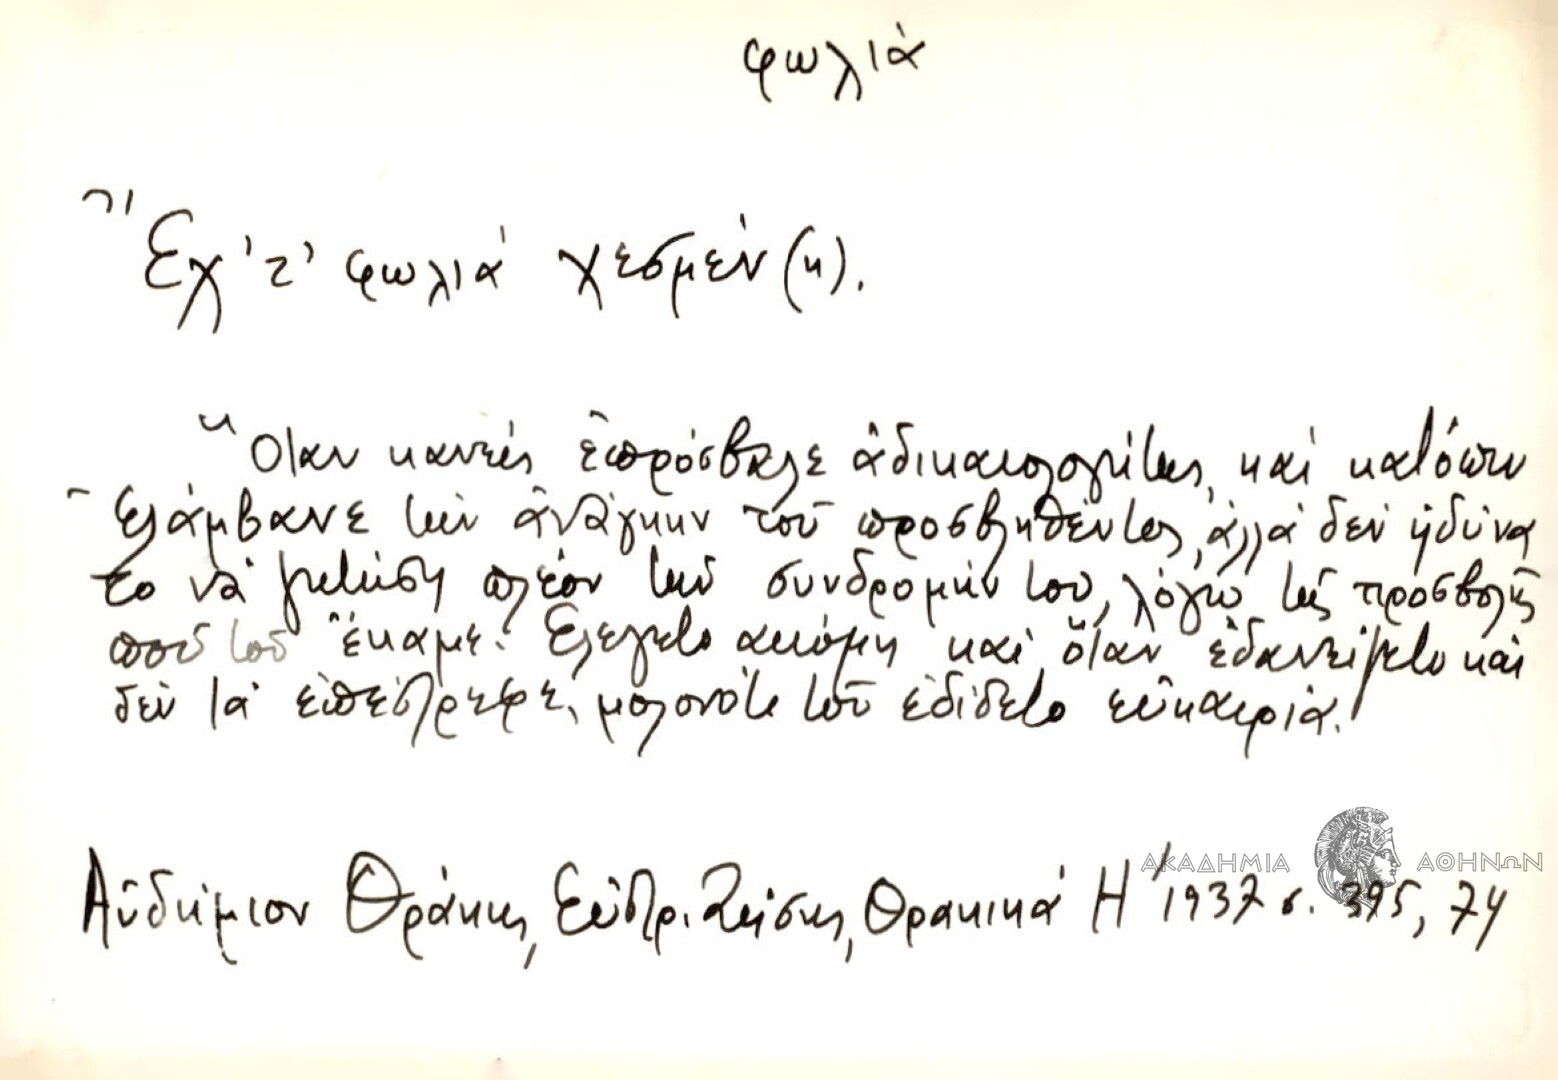 φωλιά
Ἔχ' τ' φωλιά χεσμέν(η).
Ὅταν κανείς ἐπρόσβαλε ἀδικαιολογήτως, καί κατόπιν
ἐλάμβανε τήν ἀνάγκην τοῦ προσβληθέντος, ἀλλά δέν ἠδύνα
το νά ζητήση πλέον τήν συνδρομήν του, λόγῳ τῆς προσβολῆς
πού τοῦ ἔκαμε. Ἐλέγετο ἀκόμη καί ὅταν ἐδανείζετο καί
δέν τά ἐπέστρεφε, μολονότι τοῦ ἐδίδετο εὐκαιρία.
Αὐδήμιον Θράκης, Εὐστρ. Ζήσης, Θρακικά Η' 1937 σ. 395, 74
ΑΚΑΔΗΜΙΑ ΑΘΗΝΩΝ